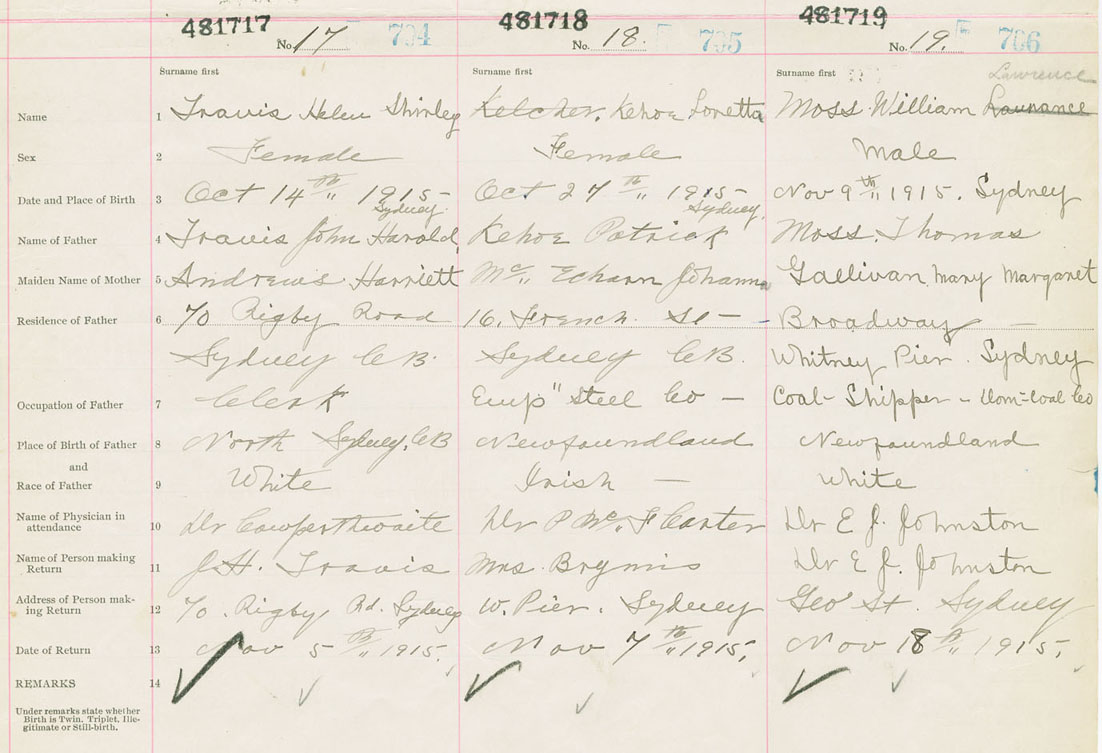 481717 481718 481719
No. 17 704 No. 18. 705 No. 19. 706
Surname first Surname first Surname first Lawrence
Name 1 Travis Helen Shirley Kelcher, Kehoe Loretta Moss William Laurance
Sex 2 Female Female Male
Date and Place of Birth 3 Oct 14th " 1915- Oct 27th " 1915- Nov 9th " 1915. Sydney
Sydney. Sydney.
Name of Father 4 Travis John Harold, Kehoe Patrick Moss, Thomas
Maiden Name of Mother 5 Andrews Harriett Mc" Echarn Johanna Gallivan Mary Margaret
Residence of Father 6 70 Rigby Road 16. French St - Broadway -
Sydney CB. Sydney CB. Whitney Pier. Sydney
Occupation of Father 7 Clerk Emp" Steel Co - Coal-Shipper - Dom-Coal Co
Place of Birth of Father 8 North Sydney, CB Newfoundland Newfoundland
and
Race of Father 9 White Irish - White
Name of Physician in
attendance 10 Dr Cowperthwaite Dr P Mc. F Carter Dr E J. Johnston
Name of Person making
Return 11 J.H. Travis Mrs. Dr E J. Johnston
Address of Person mak-
ing Return 12 70. Rigby Rd. Sydney W. Pier. Sydney Geo St. Sydney
Date of Return 13 Nov 5th " 1915. Nov 7th " 1915. Nov 18th " 1915.
REMARKS 14
Under remarks state whether
Birth is Twin. Triplet. Ille-
gitimate or Still-birth.